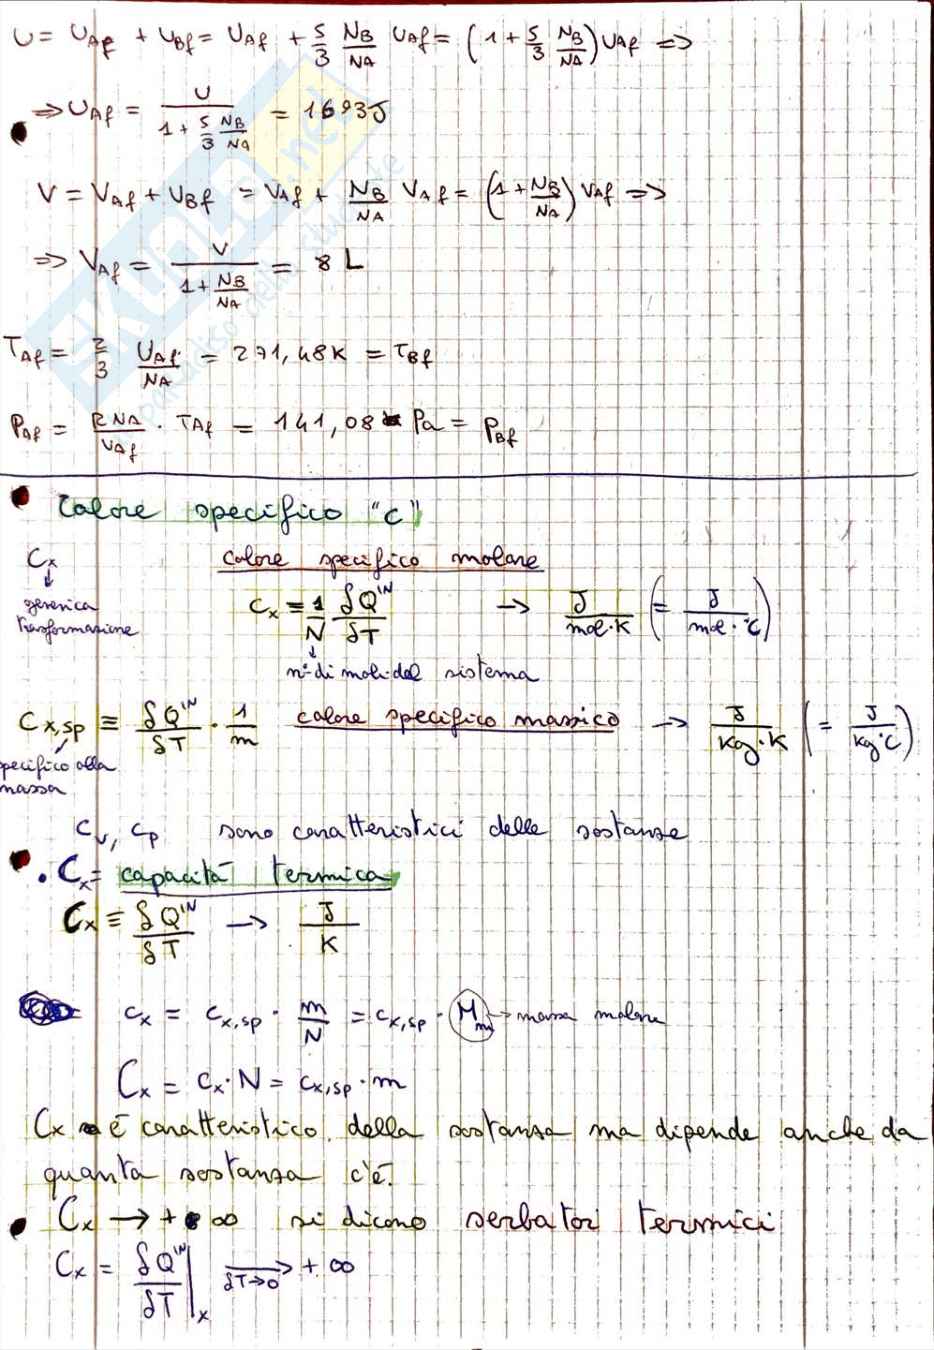 U = U_Af + U_Bf = U_Af + 5/3 N_B/N_A U_Af = (1 + 5/3 N_B/N_A) U_Af ⇒
⇒ U_Af = U / (1 + 5/3 N_B/N_A) = 1693 J
V = V_Af + V_Bf = V_Af + N_B/N_A V_Af = (1 + N_B/N_A) V_Af ⇒
⇒ V_Af = V / (1 + N_B/N_A) = 8 L
T_Af = 2/3 U_Af/N_A = 271,48 K = T_Bf
P_Af = R N_A/V_Af · T_Af = 141,08 Pa = P_Bf
Calore specifico "c"
C_x
calore specifico molare
↓
generica
trasformazione
c_x ≡ 1/N δQ^IN/δT → J/(mol·K) (= J/(mol·°C))
↓
n° di moli del sistema
C_x,sp ≡ δQ^IN/δT · 1/m calore specifico massico → J/(Kg·K) (= J/(Kg °C))
specifico alla
massa
c_v, c_p sono caratteristici delle sostanze
• C_x = capacità termica
C_x ≡ δQ^IN/δT → J/K
c_x = c_x,sp · m/N = c_x,sp · M_m → massa molare
C_x = c_x · N = c_x,sp · m
C_x è caratteristico della sostanza ma dipende anche da
quanta sostanza c'è.
C_x → +∞ si dicono serbatoi termici
C_x = δQ^IN/δT |_x →(δT→0) +∞
SKUOLA.net
il paradiso dello studente